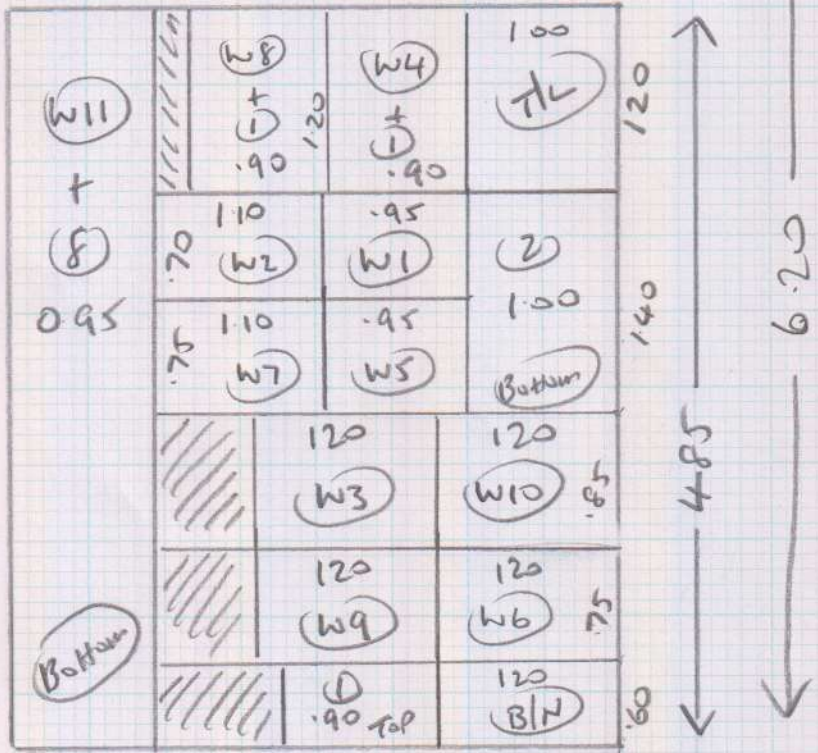 W11
+
8
0.95
Bottom
W8
+
1
.90
1.20
W4
+
1
.90
100
T/L
120
1.10
.70
W2
.95
W1
2
1.00
Bottom
140
1.10
.75
W7
.95
W5
120
W3
120
W10
.85
120
W9
120
W6
.75
1
.90 TOP
120
B/N
.60
4.85
6.20